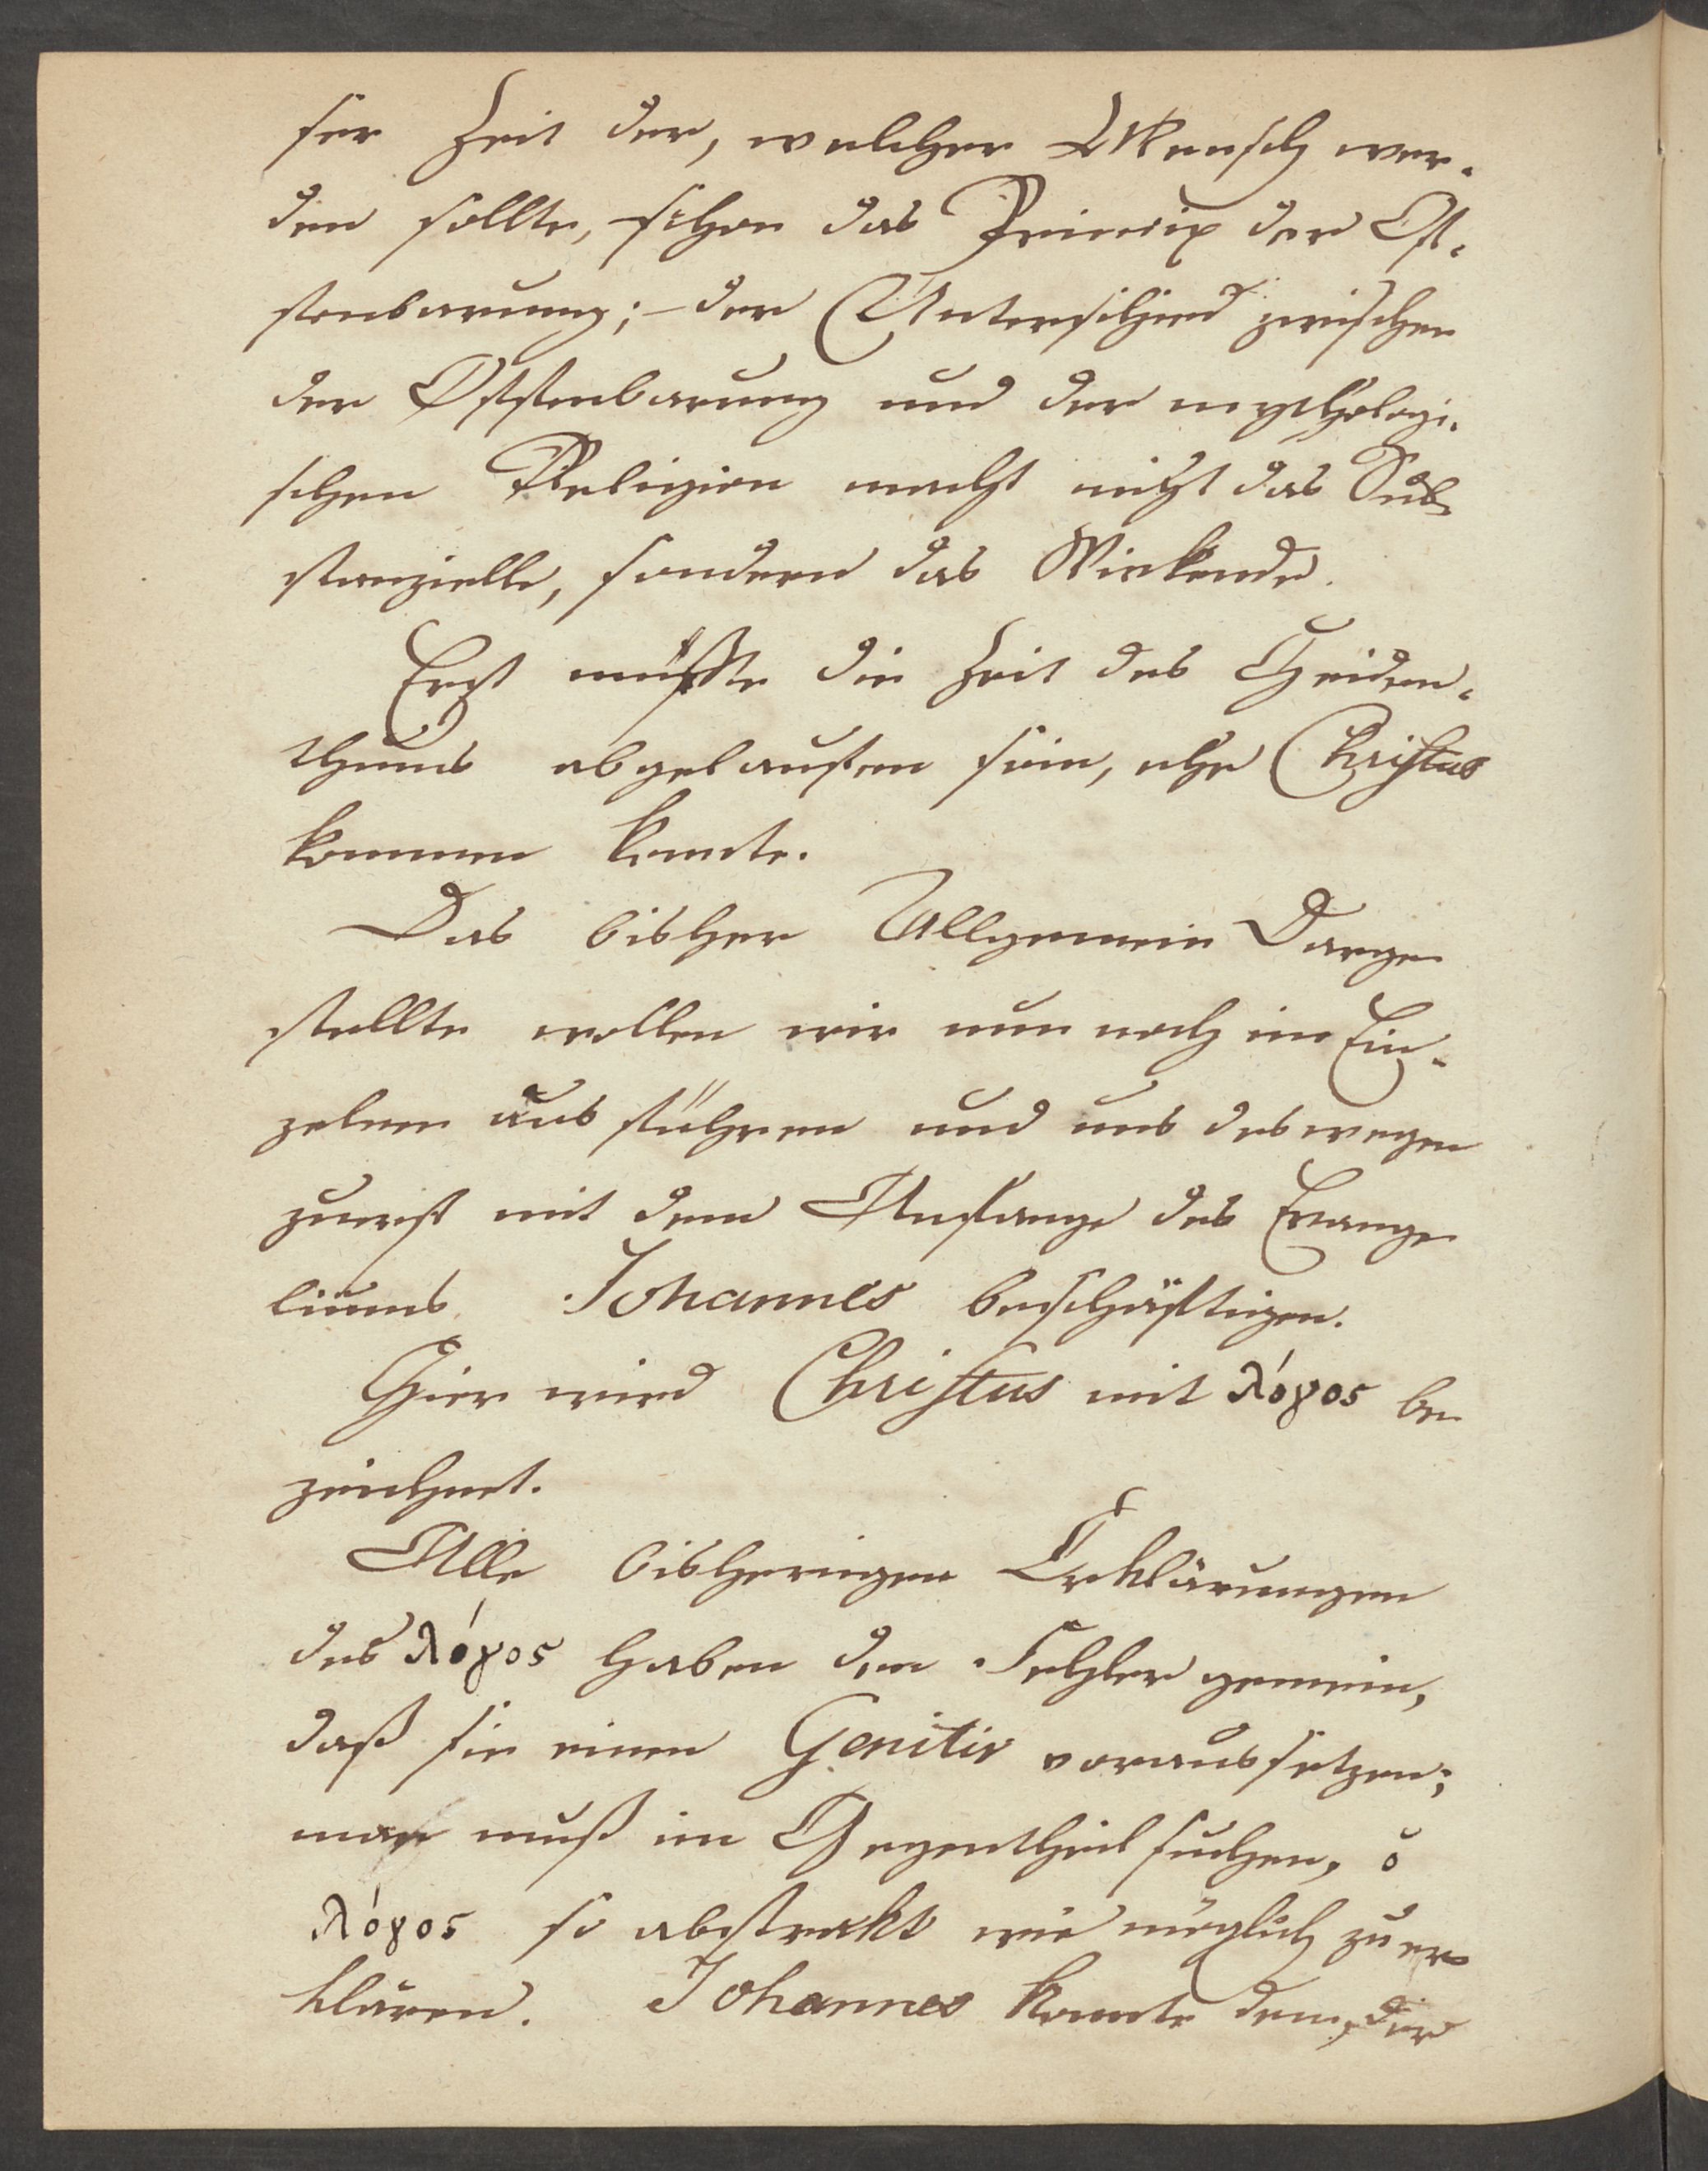 ser Zeit der, welcher Mensch wer-
den sollte, schon das Princip der Of-
fenbarung; – der Unterschied zwischen
der Offenbarung und der mythologi-
schen Religion macht nicht das Sub-
stanzielle, sondern das Wirkende.
Erst mußte die Zeit des Heiden-
thums abgelaufen sein, ehe Christus
kommen konnte.
Das bisher Allgemein Darge-
stellte wollen wir nun noch im Ein-
zelnen ausführen und uns deswegen
zuerst mit dem Anfange des Evange-
liums Johannes beschäftigen.
Hier wird Christus mit λόγος be-
zeichnet.
Alle bisherigen Erklärungen
des λόγος haben den Fehler gemein,
daß sie einen Genitiv voraussetzen;
man muß im Gegentheil suchen, ὁ
λόγος so abstrakt wie möglich zu er-
klären. Johannes konnte den, der